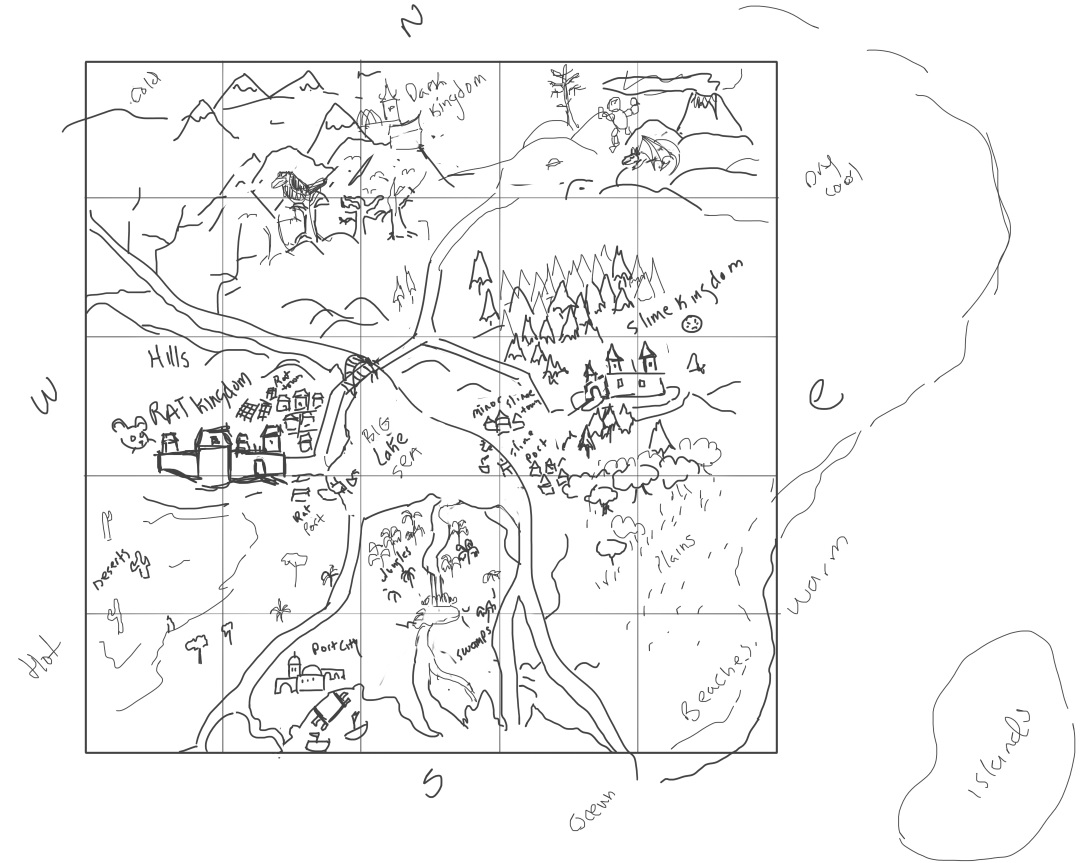 N
Cold
Dark
Kingdom
Dry
cool
Slime Kingdom
Hills
W
RAT Kingdom
Rat
town
e
minor slime
town
BIG
Lake
SEA
slime
Port
Rat
Port
Deserts
Jungles
Plains
Warm
Hot
Port City
swomps
Beaches
S
Islands
Ocewn